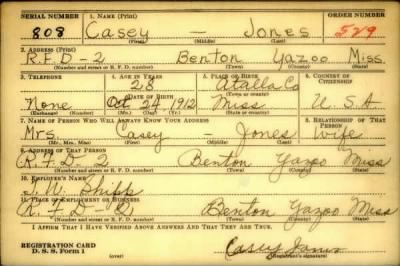 SERIAL NUMBER 1. NAME (Print) ORDER NUMBER
808 Casey — Jones 529
(First) (Middle) (Last)
2. ADDRESS (Print)
R.F.D-2 Benton Yazoo Miss.
(Number and street or R. F. D. number) (Town) (County) (State)
3. TELEPHONE 4. AGE IN YEARS 5. PLACE OF BIRTH 6. COUNTRY OF CITIZENSHIP
28 Atalla Co
DATE OF BIRTH (Town or county)
None Oct 24, 1912 Miss U.S.A
(Exchange) (Number) (Mo.) (Day) (Yr.) (State or country)
7. NAME OF PERSON WHO WILL ALWAYS KNOW YOUR ADDRESS 8. RELATIONSHIP OF THAT PERSON
Mrs. Casey — Jones Wife
(Mr., Mrs., Miss) (First) (Middle) (Last)
9. ADDRESS OF THAT PERSON
R.F.D-2 Benton Yazoo Miss
(Number and street or R. F. D. number) (Town) (County) (State)
10. EMPLOYER'S NAME
Shipp
11. PLACE OF EMPLOYMENT OR BUSINESS
R.F.D-2 Benton Yazoo Miss
(Number and street or R. F. D. number) (Town) (County) (State)
I AFFIRM THAT I HAVE VERIFIED ABOVE ANSWERS AND THAT THEY ARE TRUE.
REGISTRATION CARD
D. S. S. Form 1 Casey Jones
(Registrant's signature)